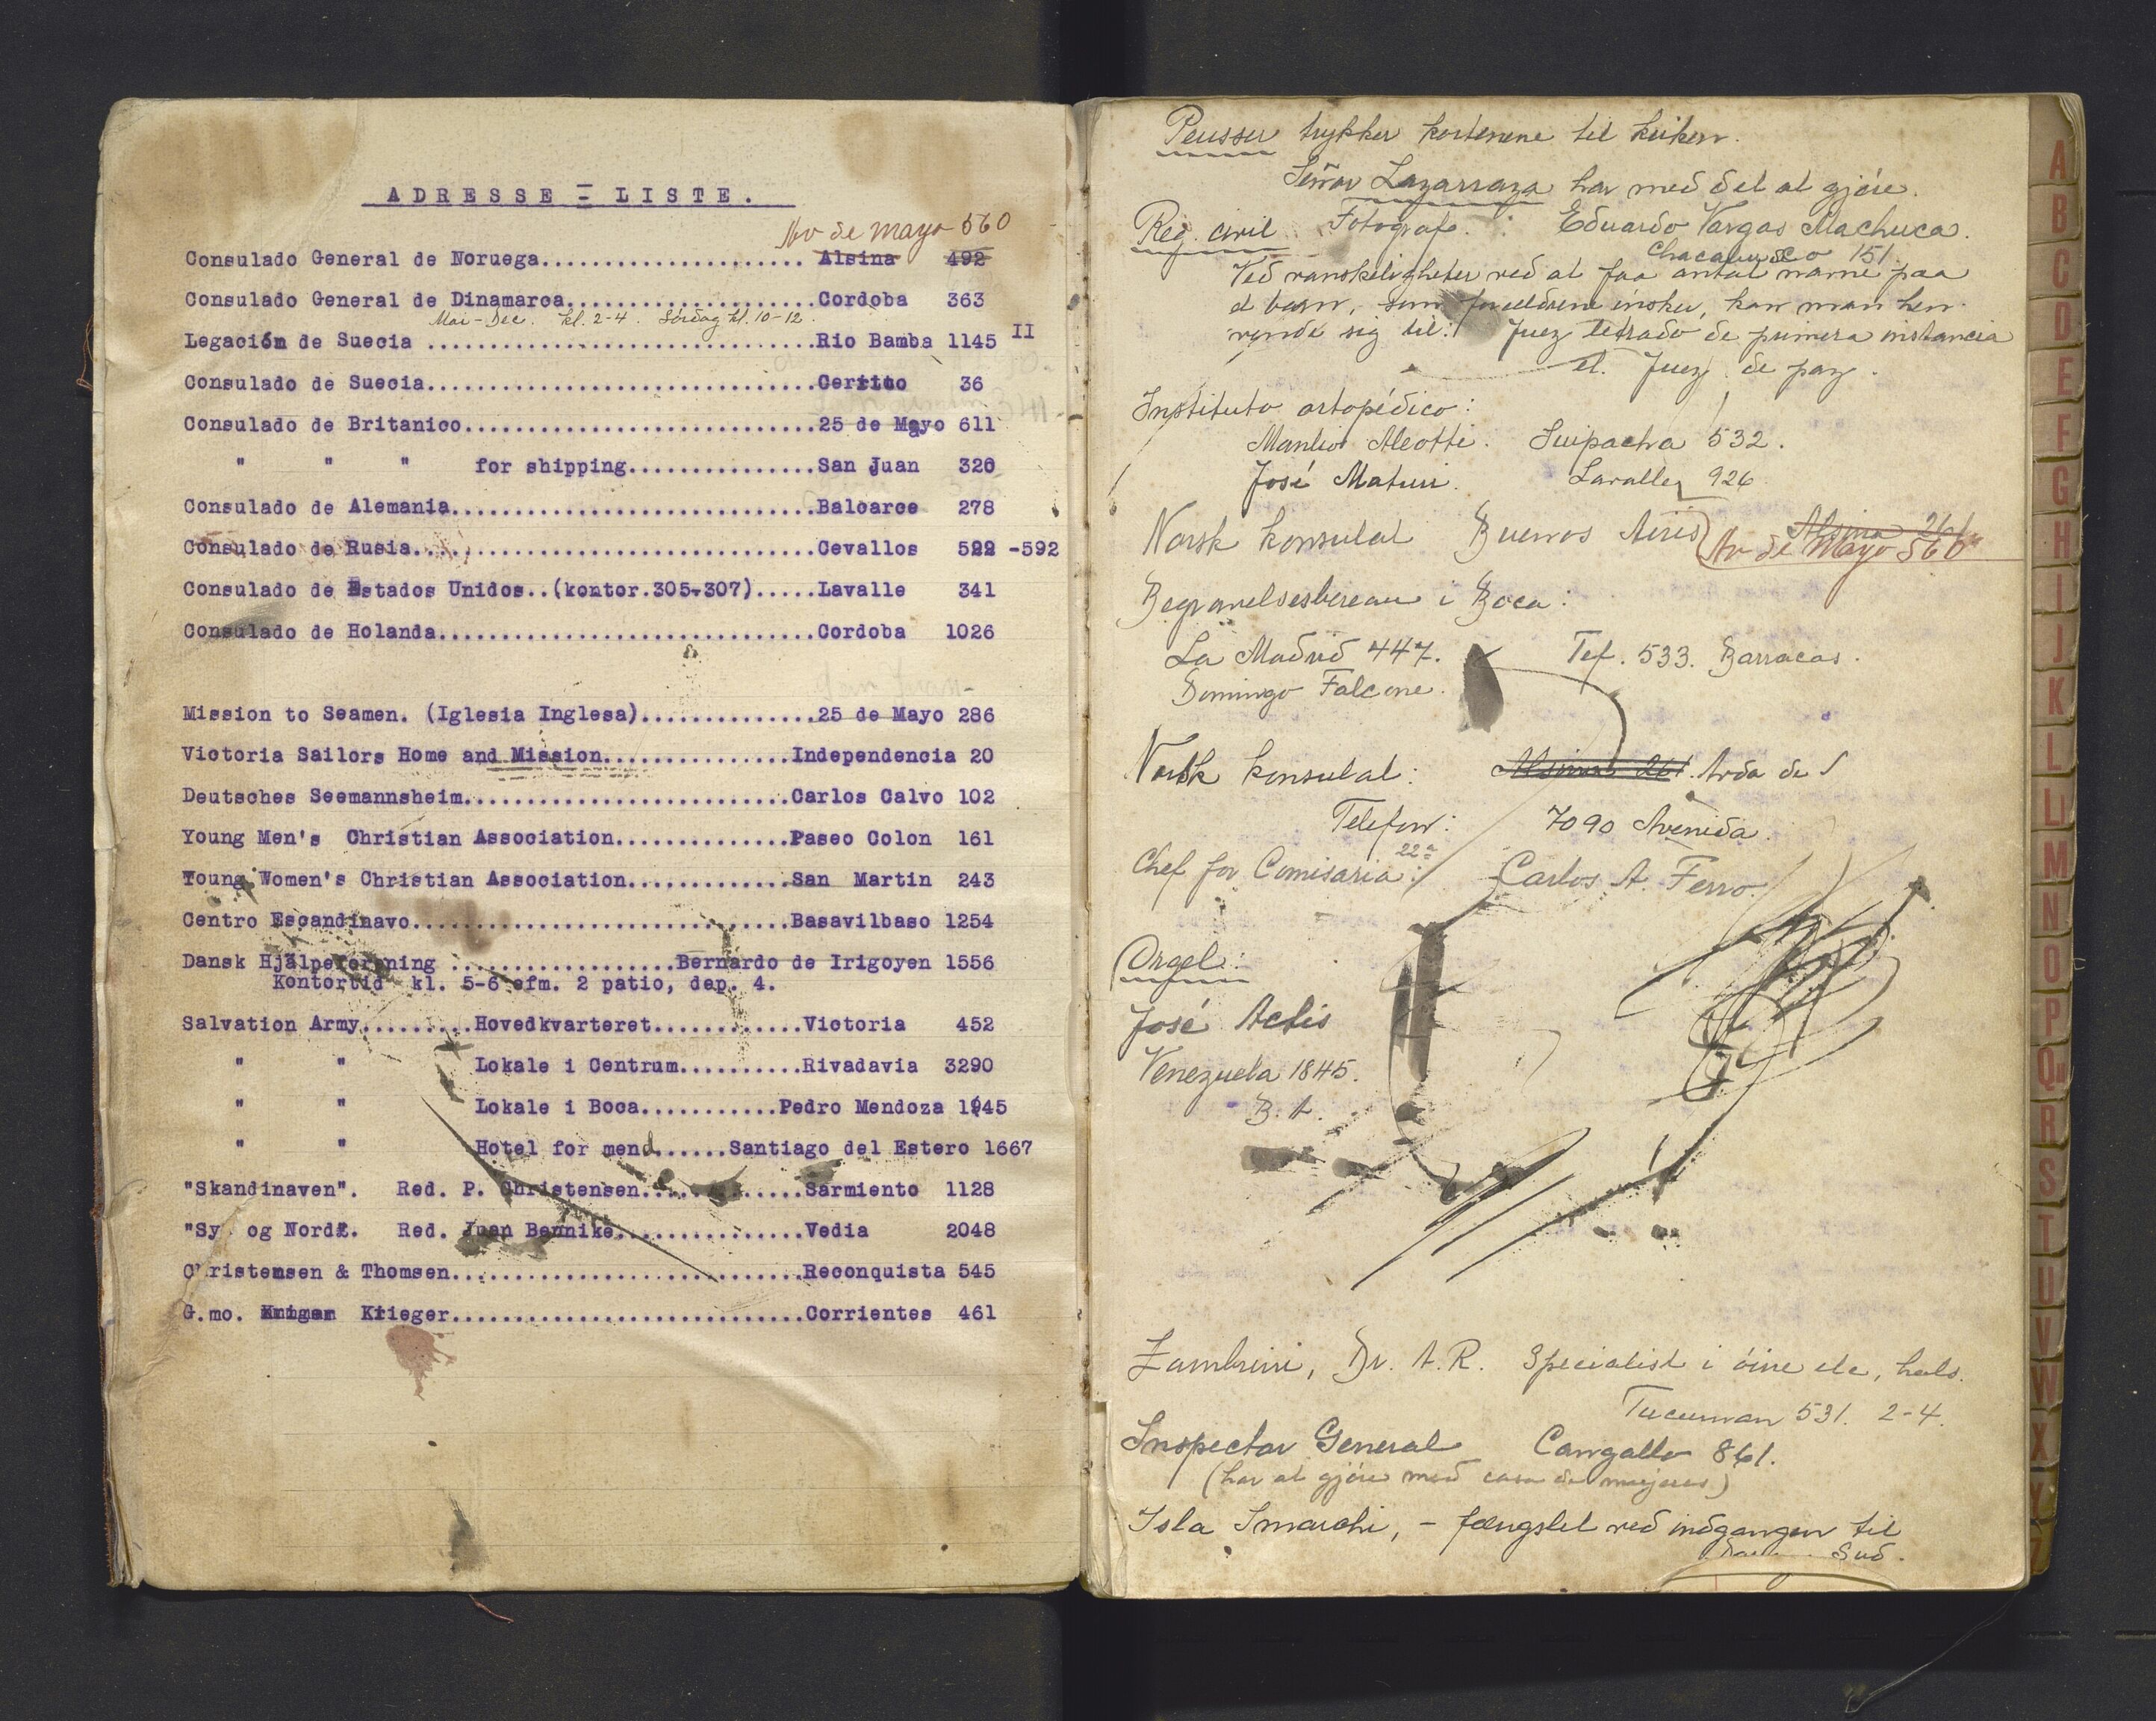 ADRESSE - LISTE.
Av de Mayo 560
Consulado General de Noruega..................... Alsina 492
Consulado General de Dinamarca....................Cordoba 363
Mai-Dec. kl. 2-4. Lördag kl. 10-12.
Legación de Suecia ...............................Rio Bamba 1145 II
Consulado de Suecia...............................Cerrito 36
Consulado de Britanico............................25 de Mayo 611
" " " for shipping...............San Juan 320
Consulado de Alemania.............................Balcarce 278
Consulado de Rusia................................Cevallos 522 -592
Consulado de Estados Unidos..(kontor.305-307).....Lavalle 341
Consulado de Holanda..............................Cordoba 1026
Mission to Seamen. (Iglesia Inglesa)..............25 de Mayo 286
Victoria Sailors Home and Mission...............Independencia 20
Deutsches Seemannsheim..........................Carlos Calvo 102
Young Men's Christian Association..............Paseo Colon 161
Young Women's Christian Association.............San Martin 243
Centro Escandinavo..............................Basavilbaso 1254
Dansk Hjälpeforening ..................Bernardo de Irigoyen 1556
Kontortid kl. 5-6 efm. 2 patio, dep. 4.
Salvation Army.........Hovedkvarteret............Victoria 452
" " Lokale i Centrum..........Rivadavia 3290
" " Lokale i Boca...........Pedro Mendoza 1945
" " Hotel for mend......Santiago del Estero 1667
"Skandinaven". Red. P. Christensen.............Sarmiento 1128
"Sy og Nord". Red. Juan Bennike...............Vedia 2048
Christensen & Thomsen............................Reconquista 545
G.mo. Krieger............................Corrientes 461
Peusser trykker kortenene til kirken.
Señor Lazarraza har med det at gjöre.
Reg. civil Fotograf. : Eduardo Vargas Machuca.
Chacabuco 151
Ved vanskeligheter ved at faa antat navne paa
et barn, som foreldrene önsker, kan man hen-
vende sig til: Juez letrado de primera instancia
el. Juez de paz.
Instituto ortopédico:
Manlio Aleotti. Suipacha 532.
José Maturi. Lavalle 926
Norsk konsulat Buenos Aires Alsina 261
Av de Mayo 560
Begravelsesbureau i Boca:
La Madrid 447. Tef. 533. Barracas.
Domingo Falcone.
Norsk konsulat: Alsina 261. Avda de
Telefon: 7090 Avenida.
Chef for Comisaria 22a: Carlos A. Ferro.
Orgel:
José Actis
Venezuela 1845.
B. A.
Zambrini, Dr. A.R. Specialist i öine etc, hals.
Tucuman 531. 2-4.
Inspector General Cangallo 861.
(har at gjöre med casa de mujeres)
Isla Smarchi, - fængslet ved indgangen til
Sud.
A
B
C
D
E
F
G
H
I
J
K
L
LL
M
N
O
P
Qu
R
S
T
U
V
W
X
Y
Z